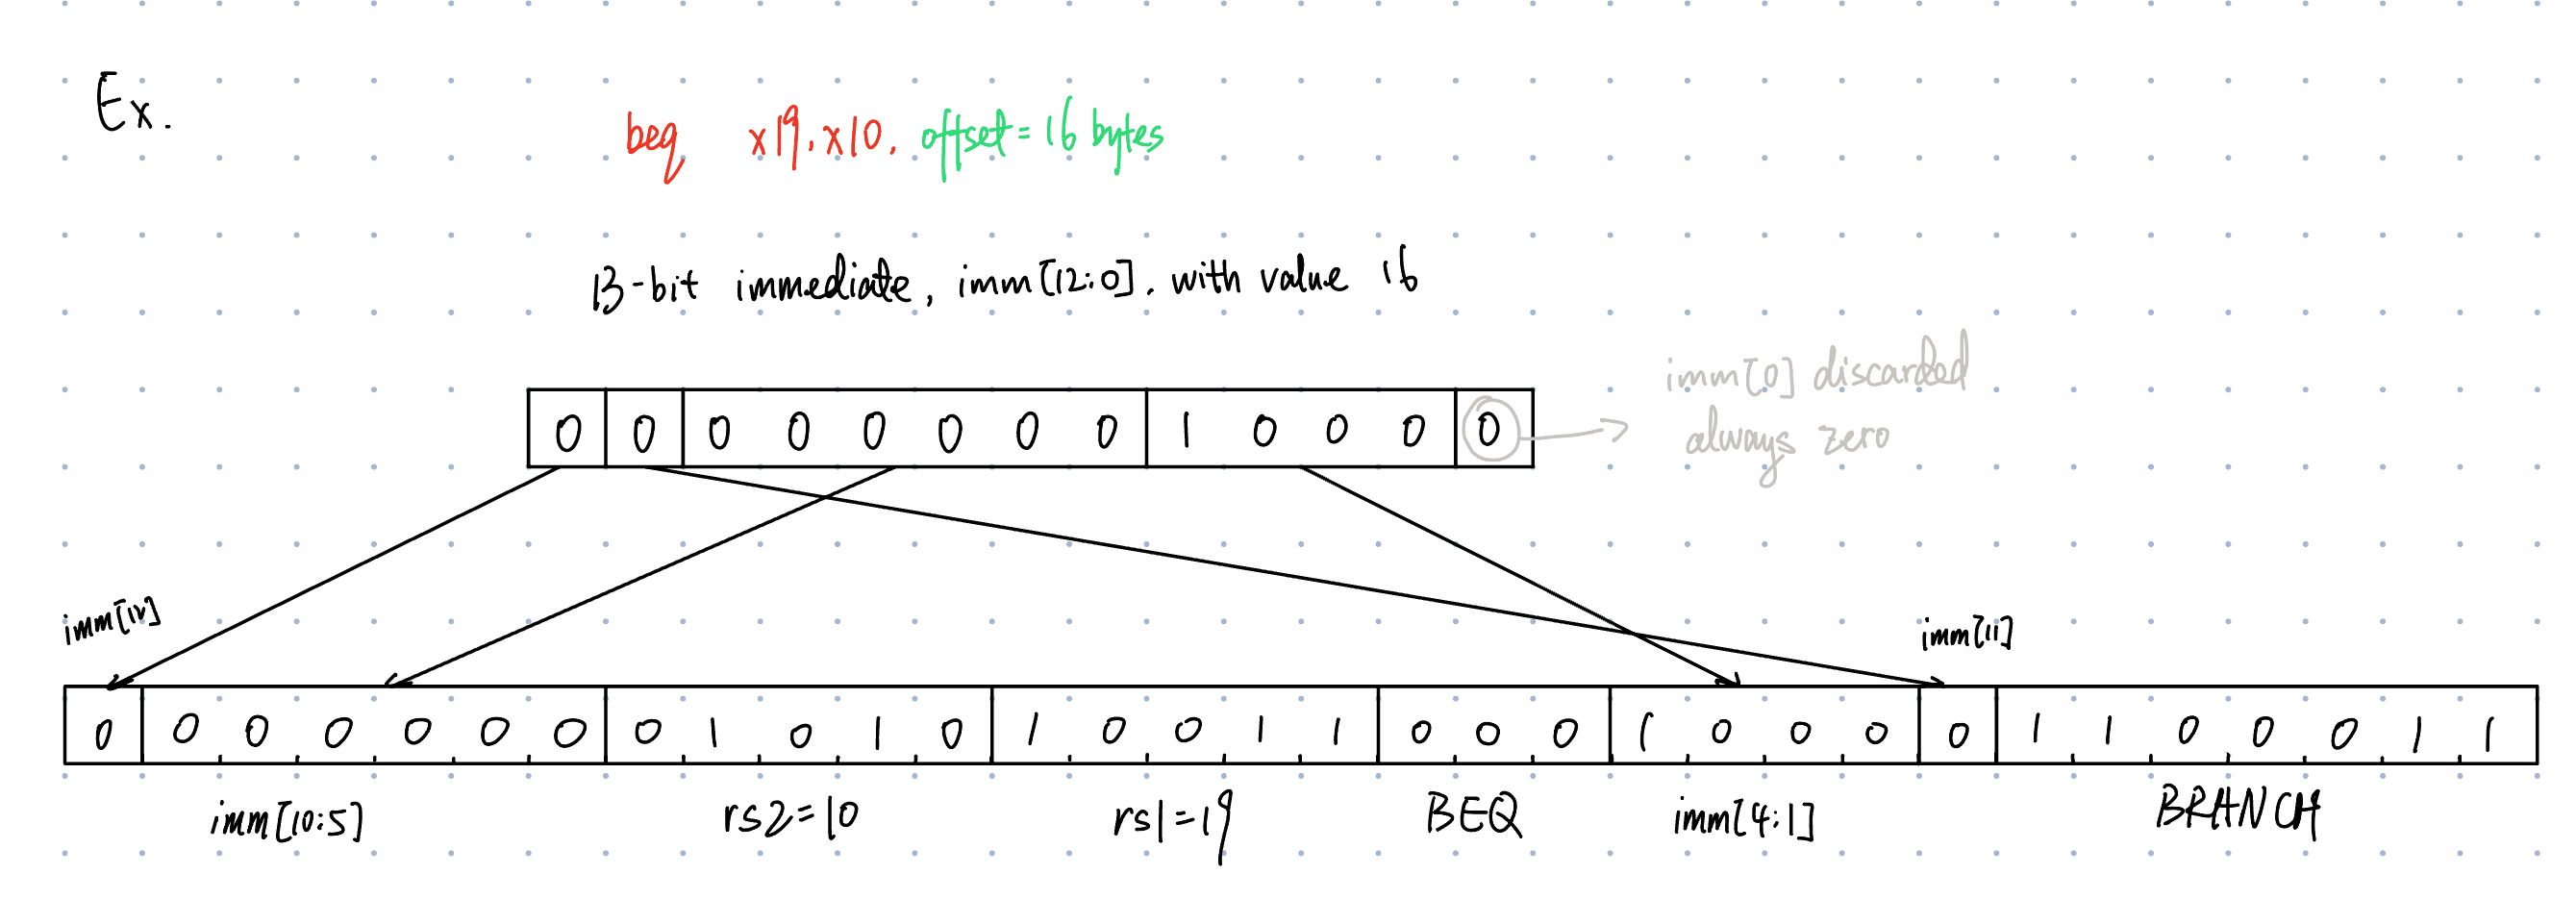 Ex.
beq x19, x10, offset = 16 bytes
13-bit immediate, imm[12:0], with value 16
imm[0] discarded
always zero
0 0 0 0 0 0 0 0 1 0 0 0 0
imm[12]
imm[11]
0 0 0 0 0 0 0 0 1 0 1 0 1 0 0 1 1 0 0 0 1 0 0 0 0 1 1 0 0 0 1 1
imm[10:5] rs2=10 rs1=19 BEQ imm[4:1] BRANCH